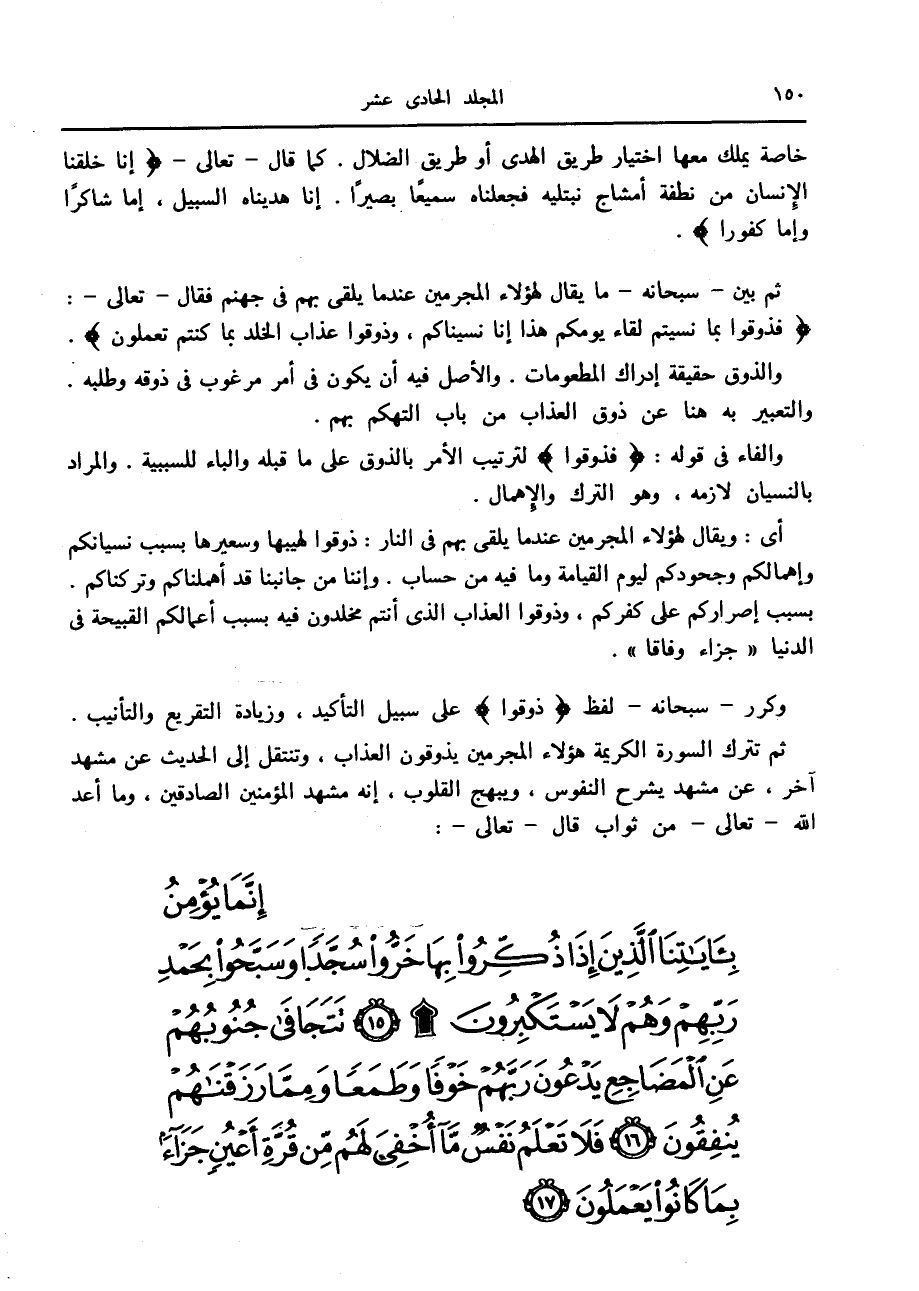 ١٥٠
المجلد الحادى عشر
خاصة يملك معها اختيار طريق الهدى أو طريق الضلال . كما قال – تعالى – ﴿ إنا خلقنا
الإِنسان من نطفة أمشاج نبتليه فجعلناه سميعًا بصيرًا . إنا هديناه السبيل ، إما شاكرًا
وإما كفورا ﴾ .
ثم بين – سبحانه – ما يقال لهؤلاء المجرمين عندما يلقى بهم فى جهنم فقال – تعالى – :
﴿ فذوقوا بما نسيتم لقاء يومكم هذا إنا نسيناكم ، وذوقوا عذاب الخلد بما كنتم تعملون ﴾ .
والذوق حقيقة إدراك المطعومات . والأصل فيه أن يكون فى أمر مرغوب فى ذوقه وطلبه .
والتعبير به هنا عن ذوق العذاب من باب التهكم بهم .
والفاء فى قوله : ﴿ فذوقوا ﴾ لترتيب الأمر بالذوق على ما قبله والباء للسببية . والمراد
بالنسيان لازمه ، وهو الترك والإِهمال .
أى : ويقال لهؤلاء المجرمين عندما يلقى بهم فى النار : ذوقوا لهيبها وسعيرها بسبب نسيانكم
وإهمالكم وجحودكم ليوم القيامة وما فيه من حساب . وإننا من جانبنا قد أهملناكم وتركناكم .
بسبب إصراركم على كفركم ، وذوقوا العذاب الذى أنتم مخلدون فيه بسبب أعمالكم القبيحة فى
الدنيا « جزاء وفاقا » .
وكرر – سبحانه – لفظ ﴿ ذوقوا ﴾ على سبيل التأكيد ، وزيادة التقريع والتأنيب .
ثم تترك السورة الكريمة هؤلاء المجرمين يذوقون العذاب ، وتنتقل إلى الحديث عن مشهد
آخر ، عن مشهد يشرح النفوس ، ويبهج القلوب ، إنه مشهد المؤمنين الصادقين ، وما أعد
الله – تعالى – من ثواب قال – تعالى – :
إِنَّمَا يُؤْمِنُ
بِـَٔايَٰتِنَا ٱلَّذِينَ إِذَا ذُكِّرُوا۟ بِهَا خَرُّوا۟ سُجَّدًا وَسَبَّحُوا۟ بِحَمْدِ
رَبِّهِمْ وَهُمْ لَا يَسْتَكْبِرُونَ ۩ ١٥ تَتَجَافَىٰ جُنُوبُهُمْ
عَنِ ٱلْمَضَاجِعِ يَدْعُونَ رَبَّهُمْ خَوْفًا وَطَمَعًا وَمِمَّا رَزَقْنَٰهُمْ
يُنفِقُونَ ١٦ فَلَا تَعْلَمُ نَفْسٌ مَّآ أُخْفِىَ لَهُم مِّن قُرَّةِ أَعْيُنٍ جَزَآءًۢ
بِمَا كَانُوا۟ يَعْمَلُونَ ١٧